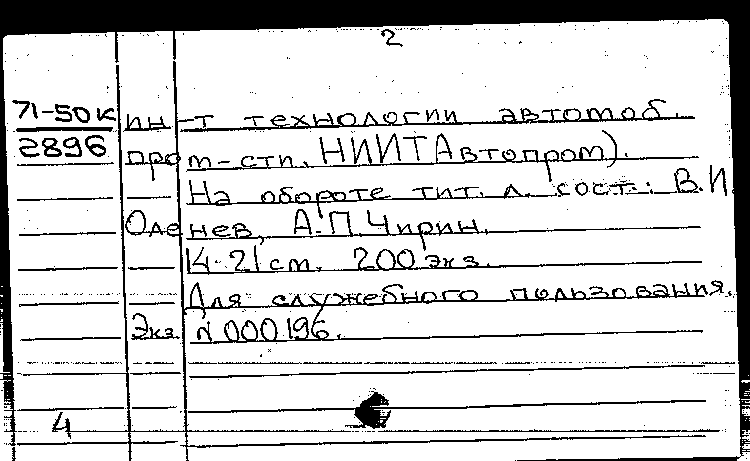 2
71-50к ин-т технологии автомоб.
2896 пром-сти. НИИТАвтопром).
На обороте тит. л. сост.: В.И.
Оленев, А.П.Чирин.
14·21 см. 200 экз.
Для служебного пользования.
Экз. N 000196.
4